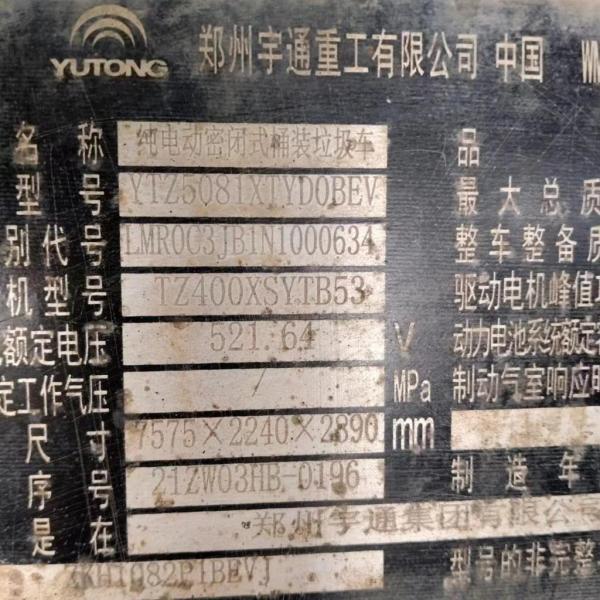 YUTONG 郑州宇通重工有限公司 中国
名称 纯电动密闭式桶装垃圾车 品
型号 YTZ5081XTYD0BEV 最大总质
别代号 LMR0C3JB1N1000634 整车整备质
机型号 TZ400XSYTB53 驱动电机峰值功
额定电压 521.64 V 动力电池系统额定容
定工作气压 / MPa 制动气室响应时
尺寸 7575×2240×2890 mm
序号 21ZW03HB-0196 制造年
是在 郑州宇通集团有限公司
ZKH1082P1BEVJ 型号的非完整